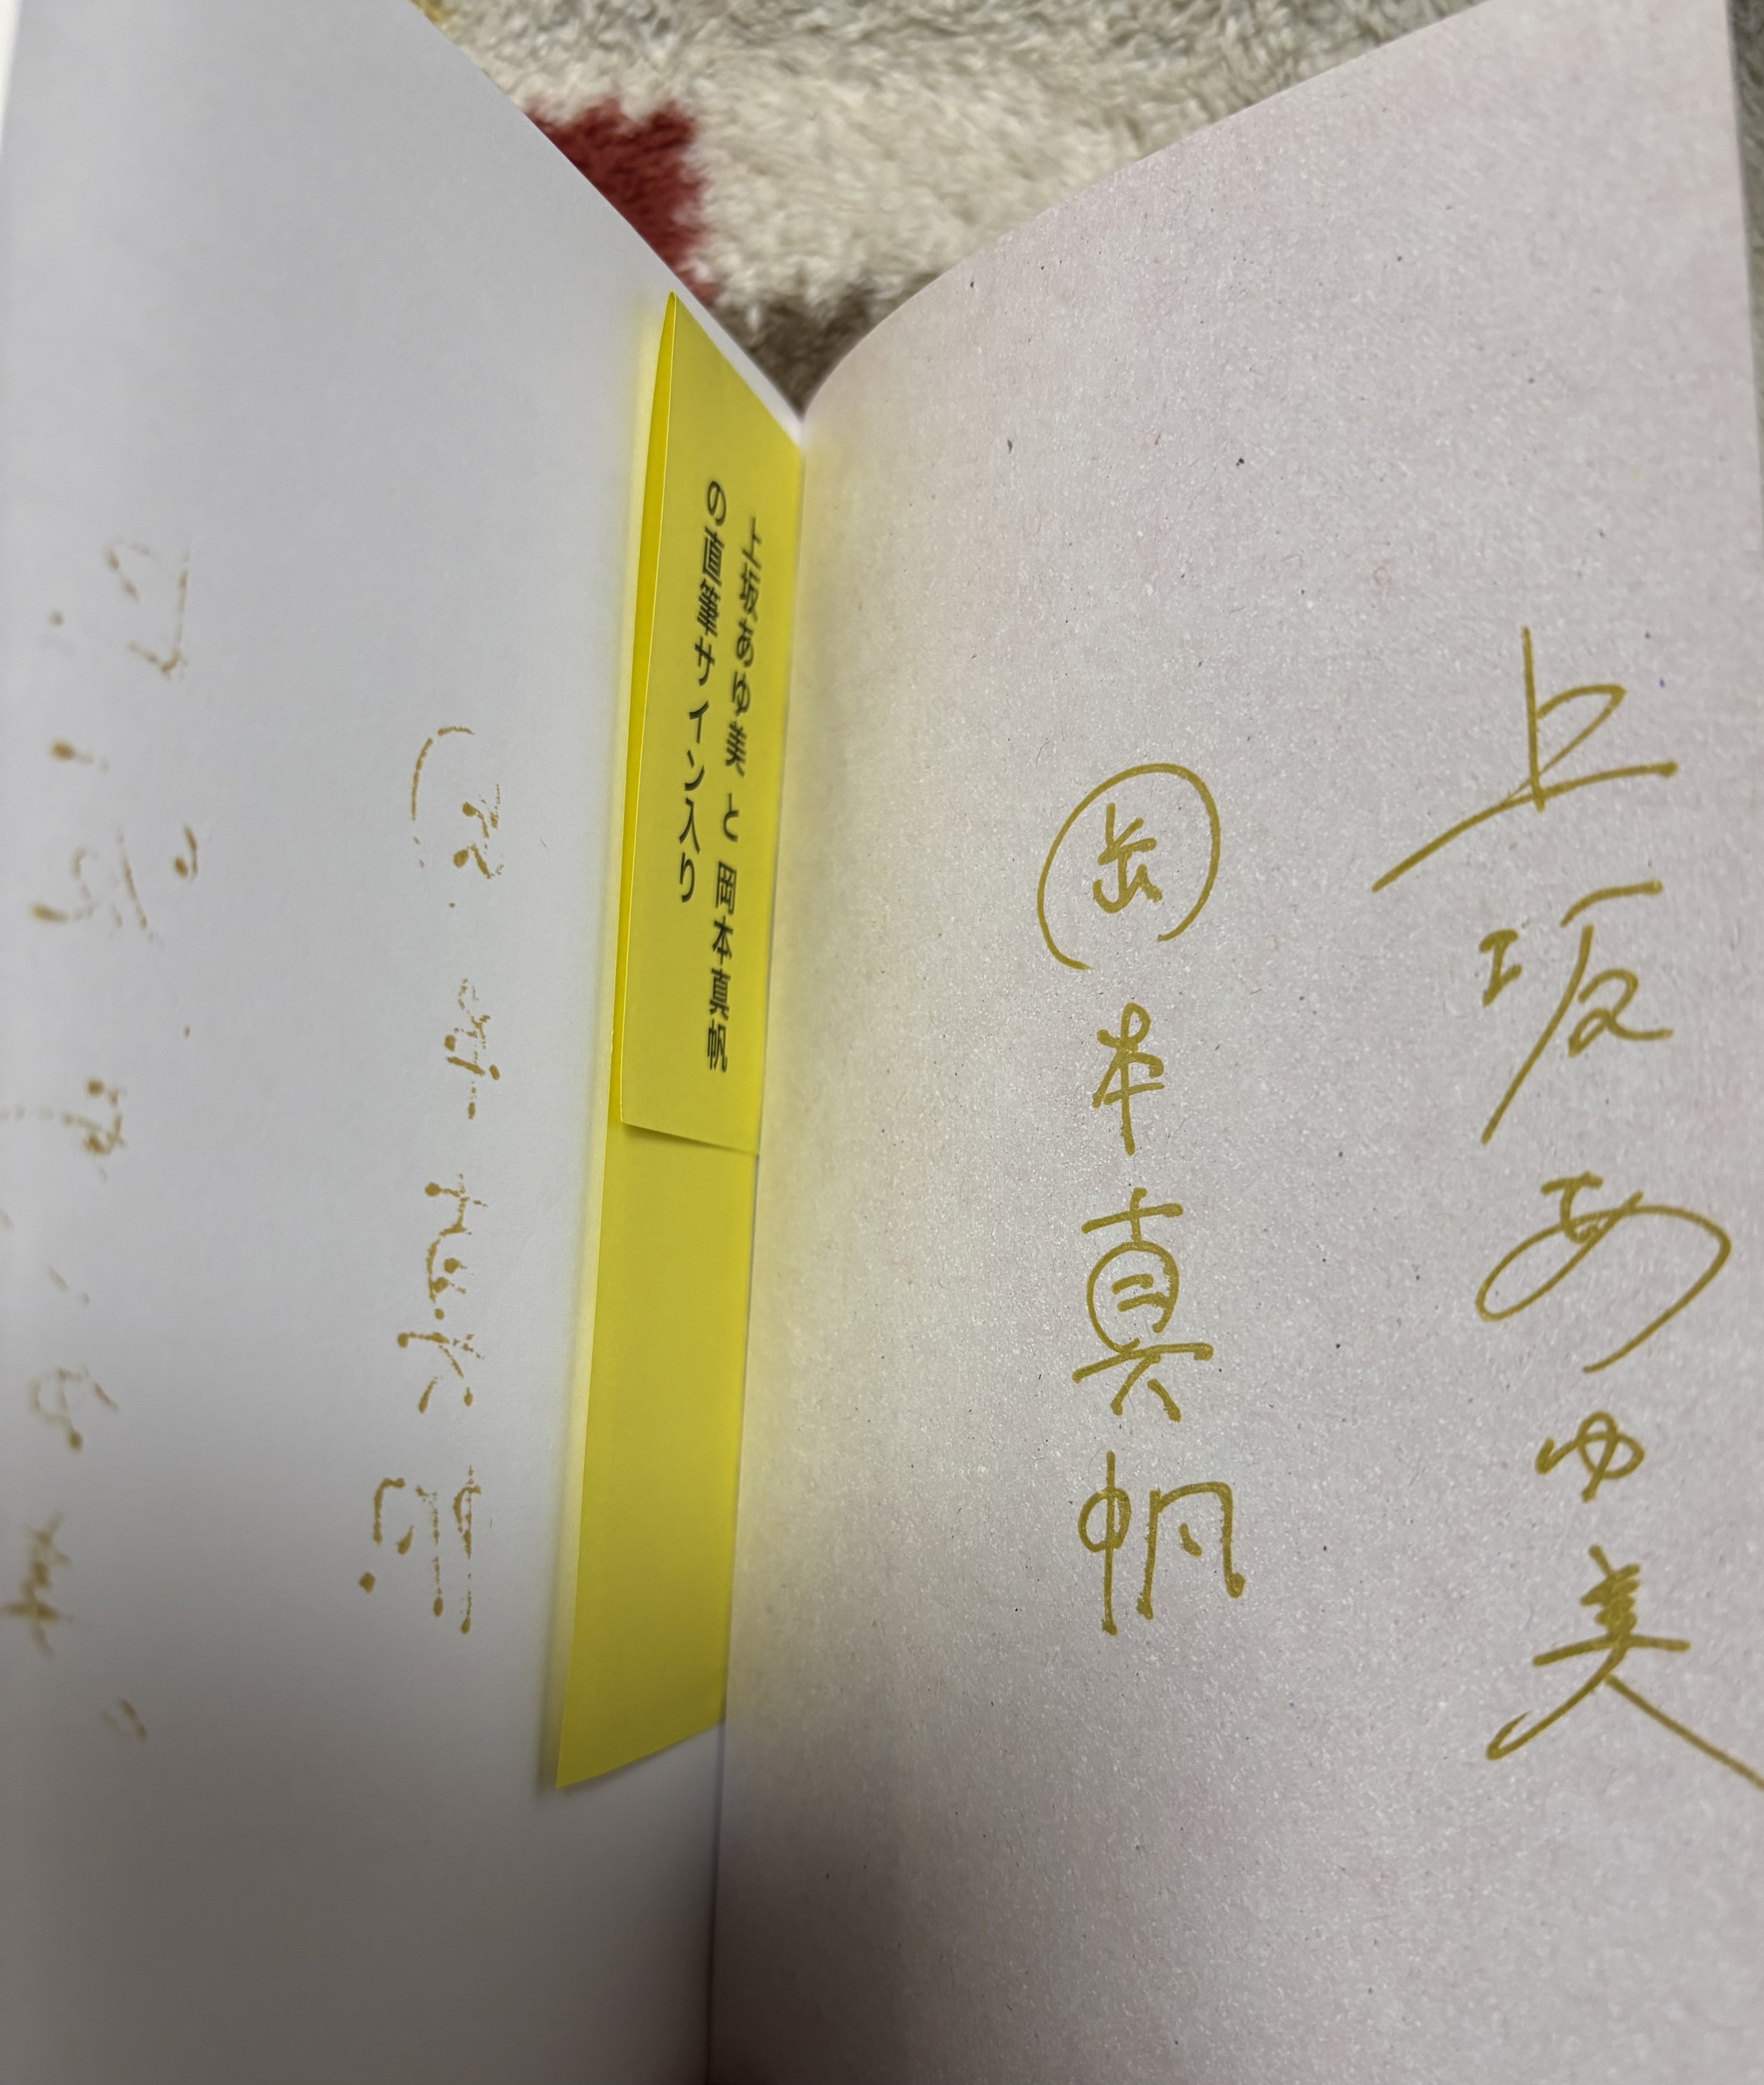 上坂あゆ美
岡本真帆
上坂あゆ美 と 岡本真帆
の直筆サイン入り